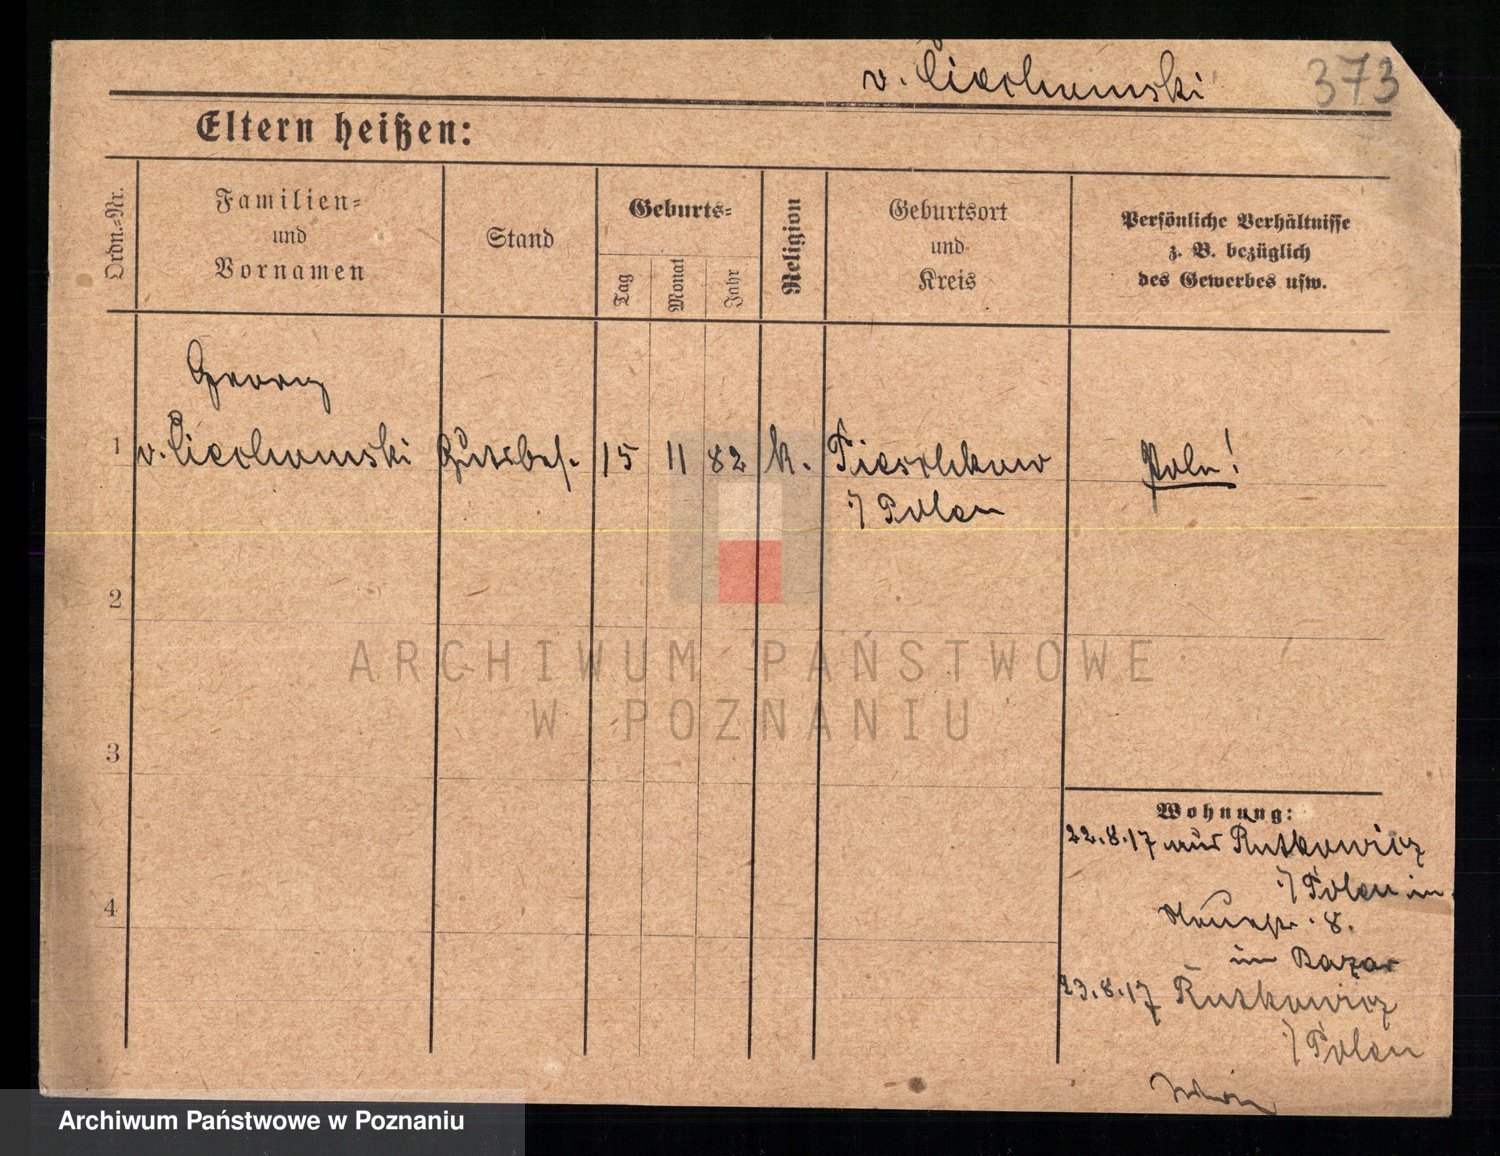 v. Cichowski
373
Eltern heißen:
Ordn.=Nr.
Familien=
und
Vornamen
Stand
Geburts=
Tag
Monat
Jahr
Religion
Geburtsort
und
Kreis
Persönliche Verhältnisse
z. B. bezüglich
des Gewerbes usw.
Georg
1 v. Cichowski Gutsbes. 15 11 82 k.
i/ Polen
Pole!
2
3
4
Wohnung:
22.8.17 aus Rutkowicz
i/ Polen in
Neuestr. 8.
im Bazar
23.8.17 Rutkowicz
i/ Polen
ARCHIWUM PAŃSTWOWE
W POZNANIU
Archiwum Państwowe w Poznaniu